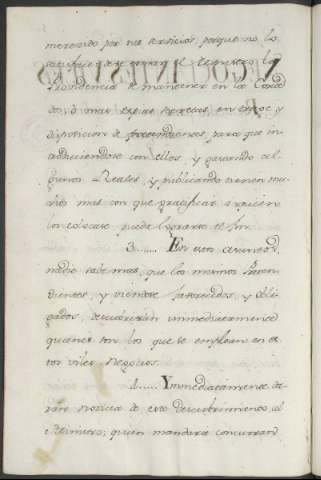 merecido por sus servicios, porque no lo
providencia de mantener en la Corte
dos, ó mas espias secretas en trage y
disposicion de pretendientes, para que in-
troduciendose con ellos, y gastando al-
gunos Reales, y publicando tienen mu-
chos mas con que gratificar á quien
los colocare, puede lograrse el fin.
3...... En este asunto
nadie sabe mas, que los mismos Preten-
dientes, y viendose favorecidos, y obli-
gados, descubrirán immediatamente
quienes son los que se emplean en es-
tos viles Negocios.
4..... Ymmediatamente da-
rán noticia de este descubrimiento al
Ministro, quien mandará concurran